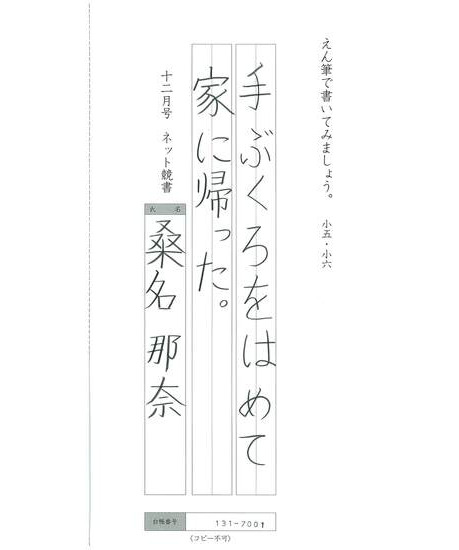 えん筆で書いてみましょう。 小五・小六
手ぶくろをはめて
家に帰った。
十二月号 ネット競書
氏名
桑名 那奈
台帳番号 131-7001
(コピー不可)